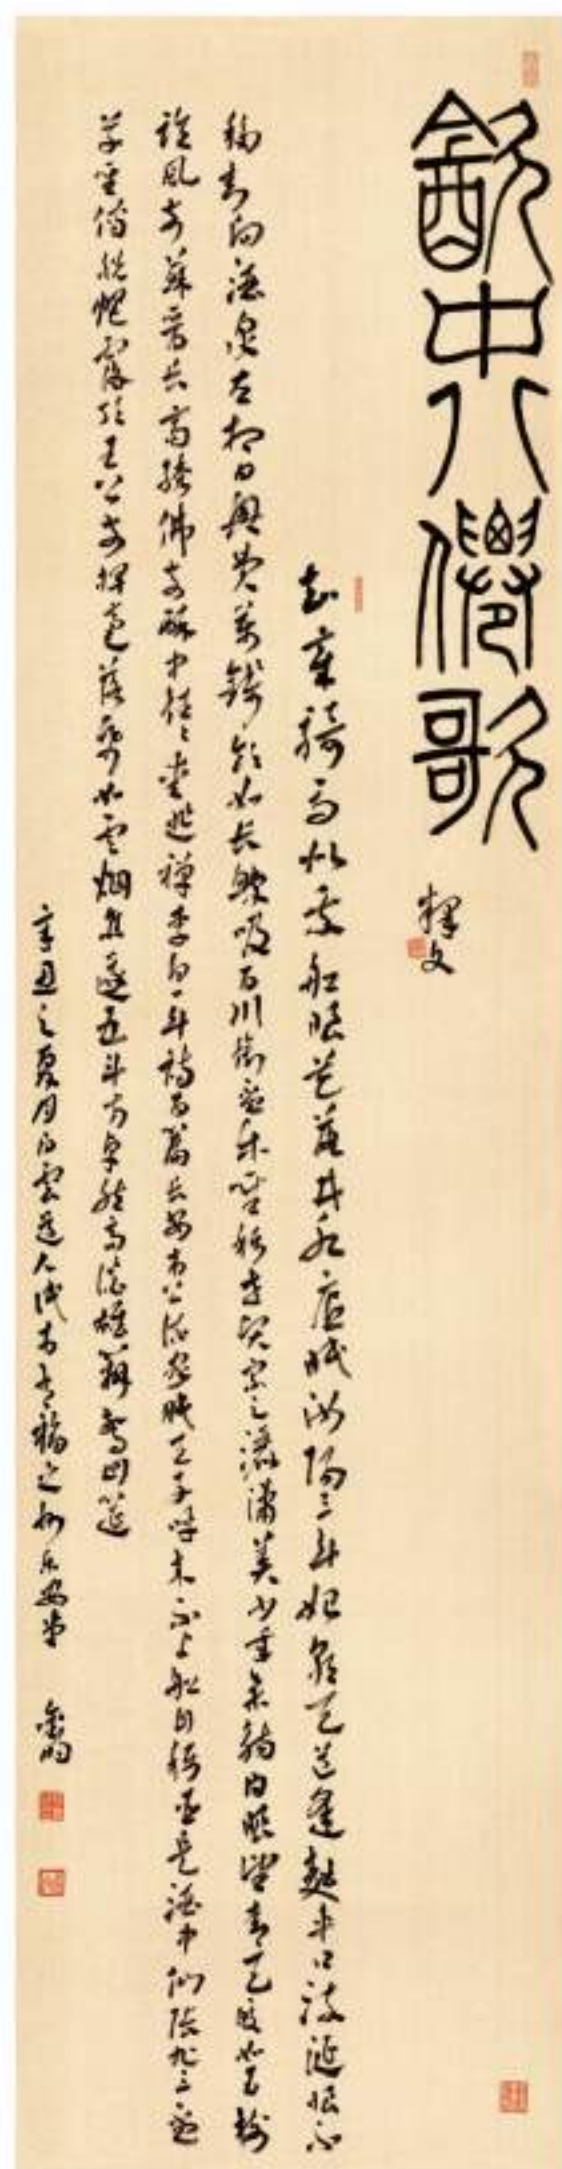 㱃中八僊歌
釋文
知章騎馬似乘船眼花落井水底眠汝陽三斗始朝天道逢麴車口流涎恨不
移封向酒泉左相日興費萬錢飲如長鯨吸百川銜盃樂聖稱世賢宗之瀟灑美少年舉觴白眼望青天皎如玉樹
臨風前蘇晉長齋繡佛前醉中往々愛逃禪李白一斗詩百篇長安市上酒家眠天子呼來不上船自稱臣是酒中仙張旭三盃
草聖傳脫帽露頂王公前揮毫落紙如雲烟焦遂五斗方卓然高談雄辯驚四筵
辛丑之夏月白雲道人